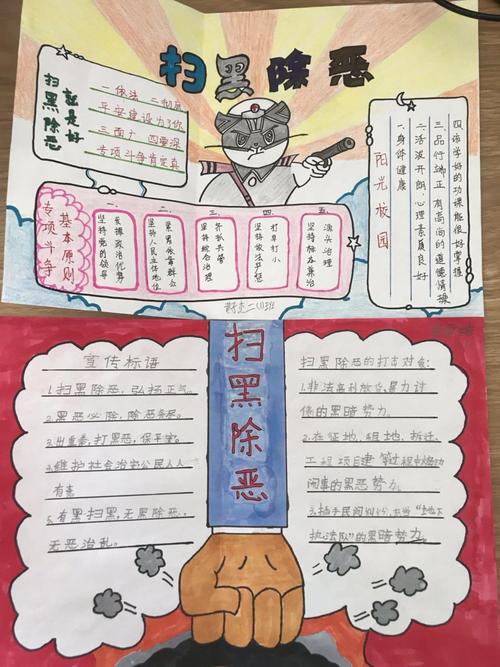 扫黑除恶
扫黑除恶
就是好
一依法 二彻底
平安建设为了你
三面广 四要深
专项斗争肯定真
阳光校园
一.身体健康
二.活泼开朗,心理素质良好
三.品行端正,有高尚的道德情操
四.该学好的功课能很好掌握
专项斗争
基本原则
一.
发挥政治优势
坚持党的领导
二.
紧紧依靠群众
坚持人民主体地位
三.
齐抓共管
坚持综合治理
四.
打早打小
坚持依法严惩
五.
源头治理
坚持标本兼治
二(1)班
扫黑除恶
宣传标语
1.扫黑除恶,弘扬正气。
2.黑恶必除,除恶务尽。
3.出重拳,打黑恶,保平安。
4.维护社会治安公民人人
有责
5.有黑扫黑,无黑除恶,
无恶治乱。
扫黑除恶的打击对象:
1.非法高利放贷、暴力讨
债的黑暗势力。
2.在征地、租地、拆迁、
工程项目建等过程中煽动
闹事的黑恶势力。
3.插手民间纠纷,充当“地下
执法队”的黑暗势力。